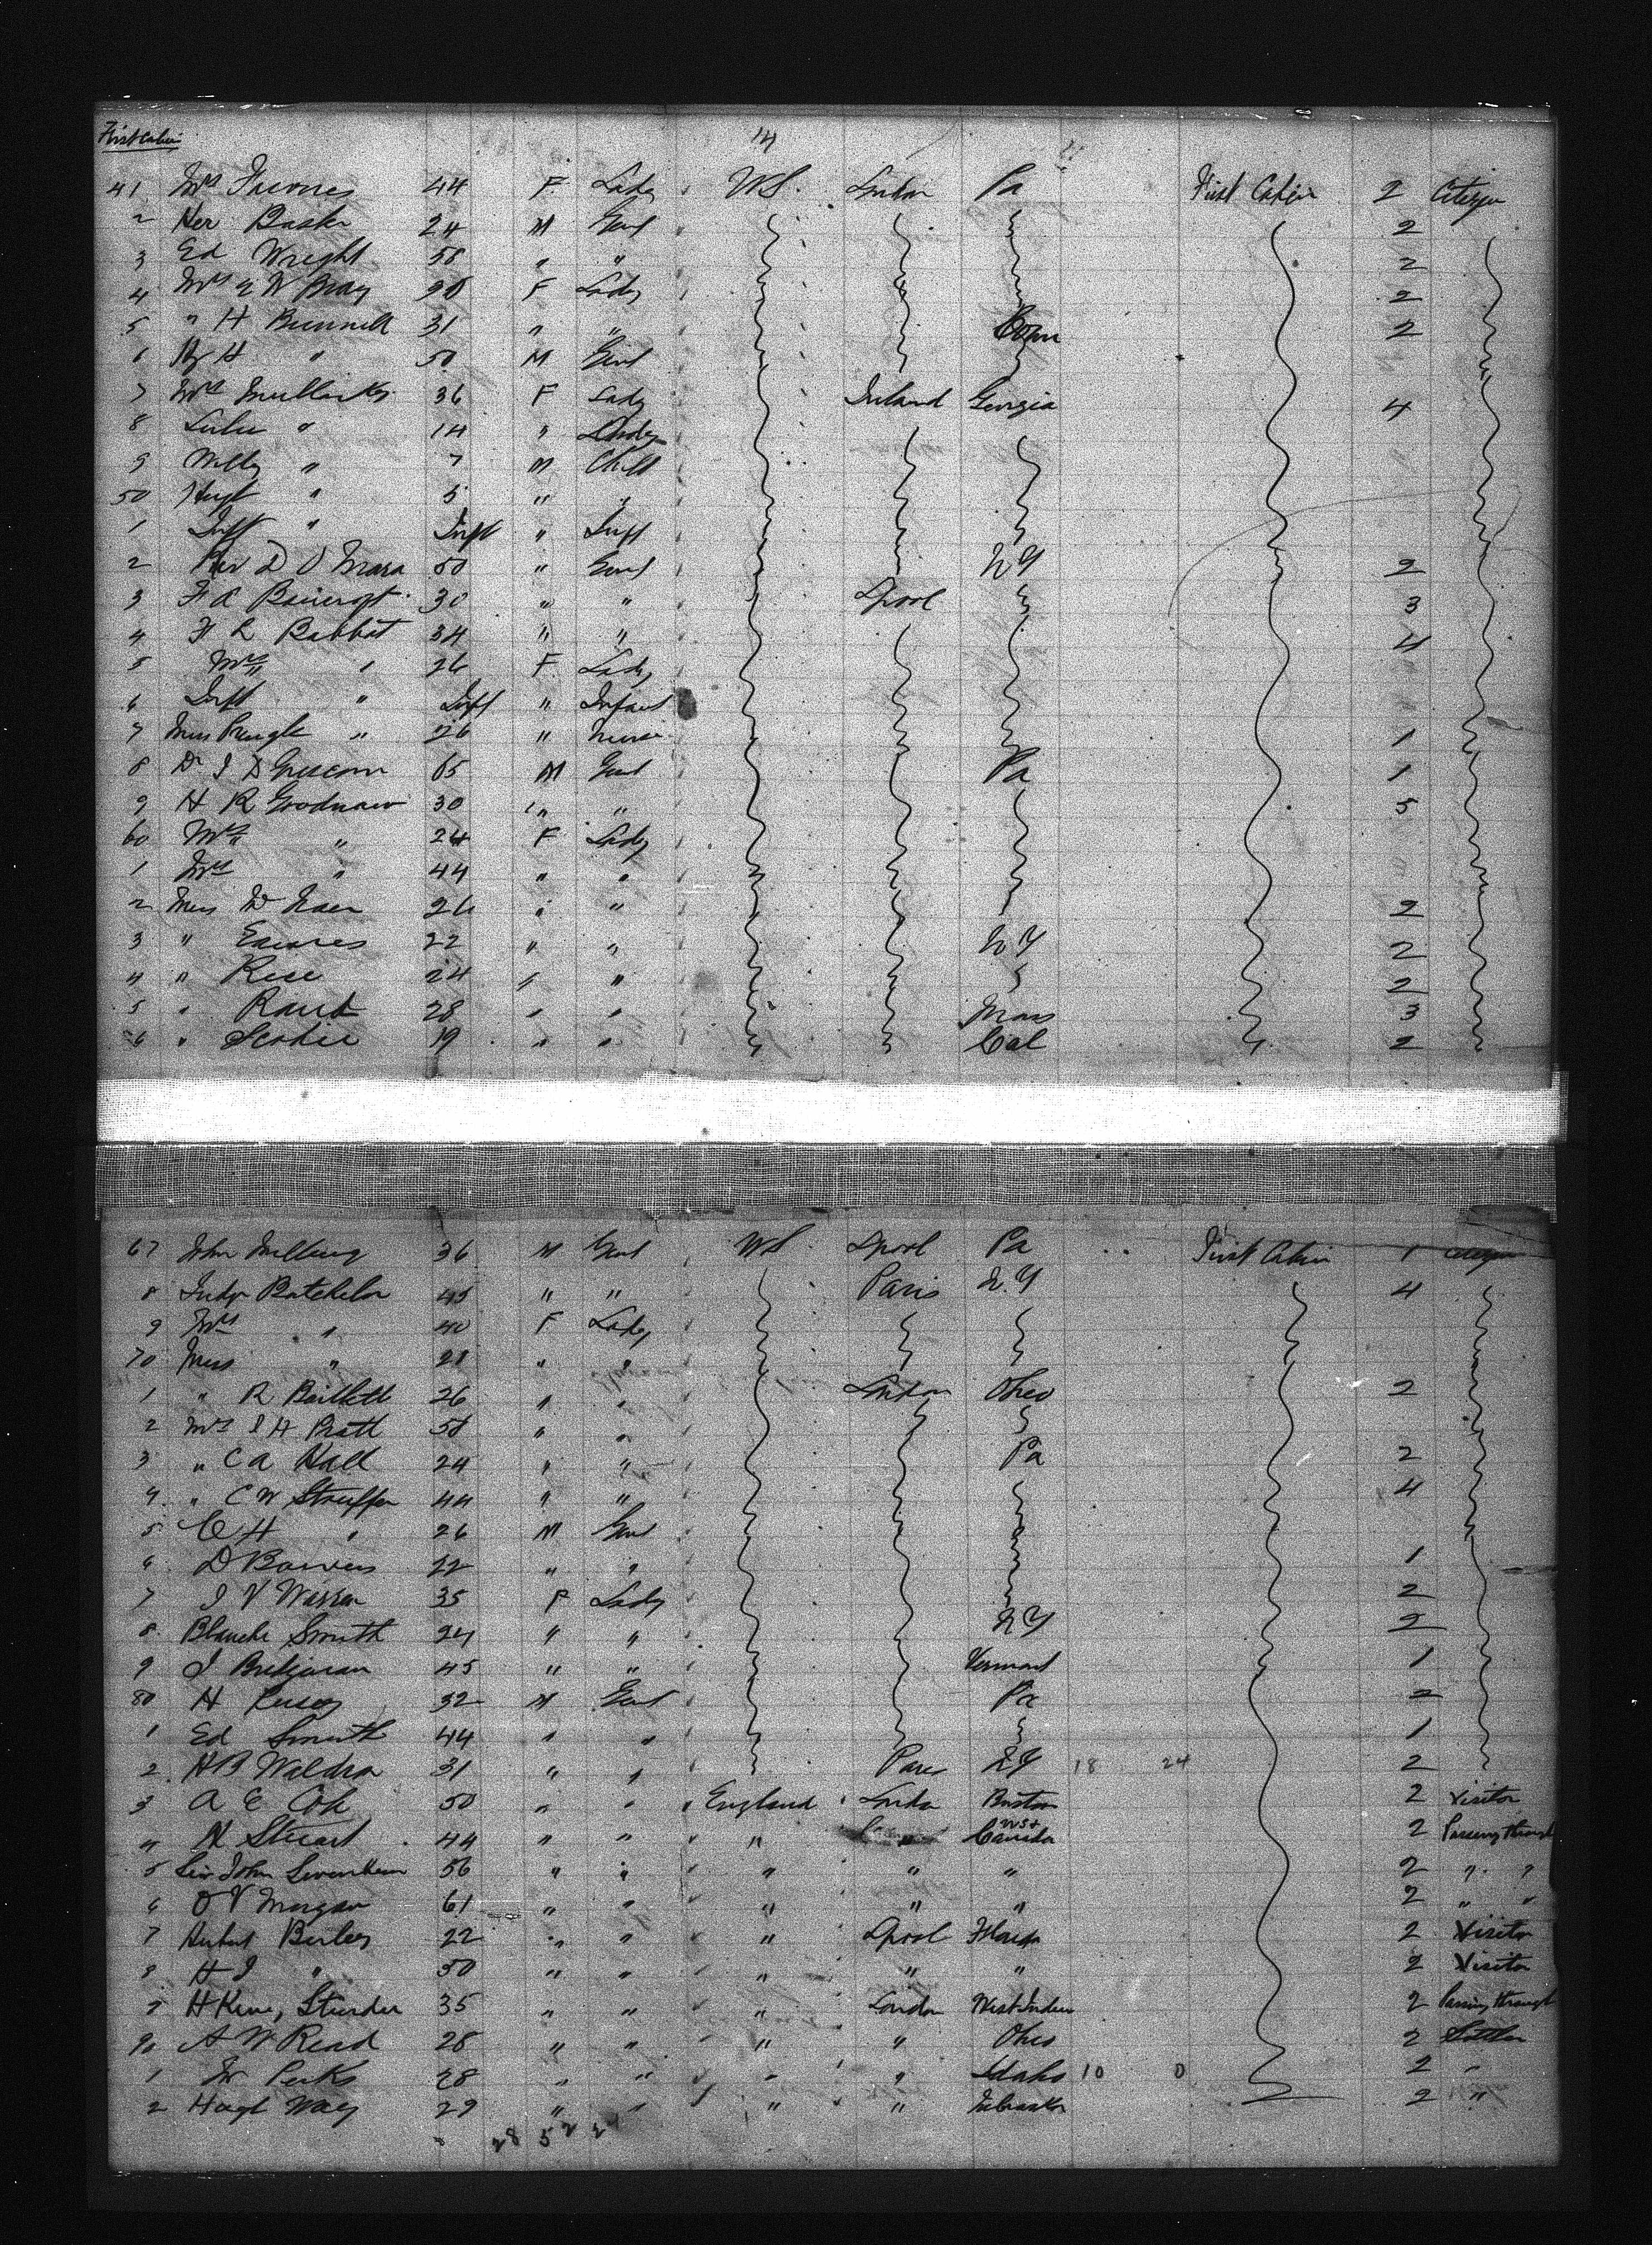 First Cabin
14
41 Mrs 44 F Lady U.S. London Pa First Cabin 2 Citizen
2 Her Basker 24 M Gent 2
3 Ed Wright 58 " " 2
4 Mrs E W Bray F Lady 2
5 " H Bunnell 31 " " Conn 2
6 Hy H " 50 M Gent
7 Mrs Mullarky 36 F Lady Ireland Georgia 4
8 Lulu " 14 " Lady
9 Willy " 7 M Child
50 Hugh " 5 " "
1 Inft " Inft " Inft
2 Rev D O Mara 50 " Gent N Y 2
3 F A Bancroft 30 " " Lpool 3
4 F R Babbot 34 " " 4
5 Mrs " 26 F Lady
6 Inft " Inft " Infant
7 Miss Pringle " 26 " Nurse 1
8 Dr J D Griscom 65 M Gent Pa 1
9 H R Goodnow 30 " " 5
60 Mrs " 24 F Lady
1 Mrs " 44 " "
2 Miss 26 " " 2
3 " 22 " " N Y 2
4 " Rice 24 " " 2
5 " Rand 28 " " Mass 3
6 " 19 " " Cal 2
67 John 36 M Gent U.S. Lpool Pa First Cabin 1 Citizen
8 Judge Batchelor 45 " " Paris N.Y 4
9 Mrs " 40 F Lady
70 Miss " 21 " "
1 " R Bartlett 26 " " London Ohio 2
2 Mrs S H Pratt 58 " "
3 " C A Hall 24 " " Pa 2
4 " C W Stauffer 44 " " 4
5 C H " 26 M Gent
6 D Bowen 22 " " 1
7 J V Warren 35 F Lady 2
8 Blanche Smith 24 " " N Y 2
9 J 45 " " Vermont 1
80 H 32 M Gent Pa 2
1 Ed Smith 44 " " 1
2 H B Waldron 31 " " Paris N Y 18 24 2
3 A E 50 " " England London Boston 2 Visitor
" H Stuart 44 " " " " Canada 2 Passing through
5 Sir John 56 " " " " " 2 " "
6 O V Morgan 61 " " " " " 2 " "
7 Herbert 22 " " " Lpool Florida 2 Visitor
8 H J " 50 " " " " " 2 Visitor
9 H King, 35 " " " London West Indies 2 Passing through
90 A W Read 28 " " " " Ohio 2 Settler
1 W Perks 28 " " " " Idaho 10 0 2 "
2 Hugh 29 " " " " Nebraska 2 "